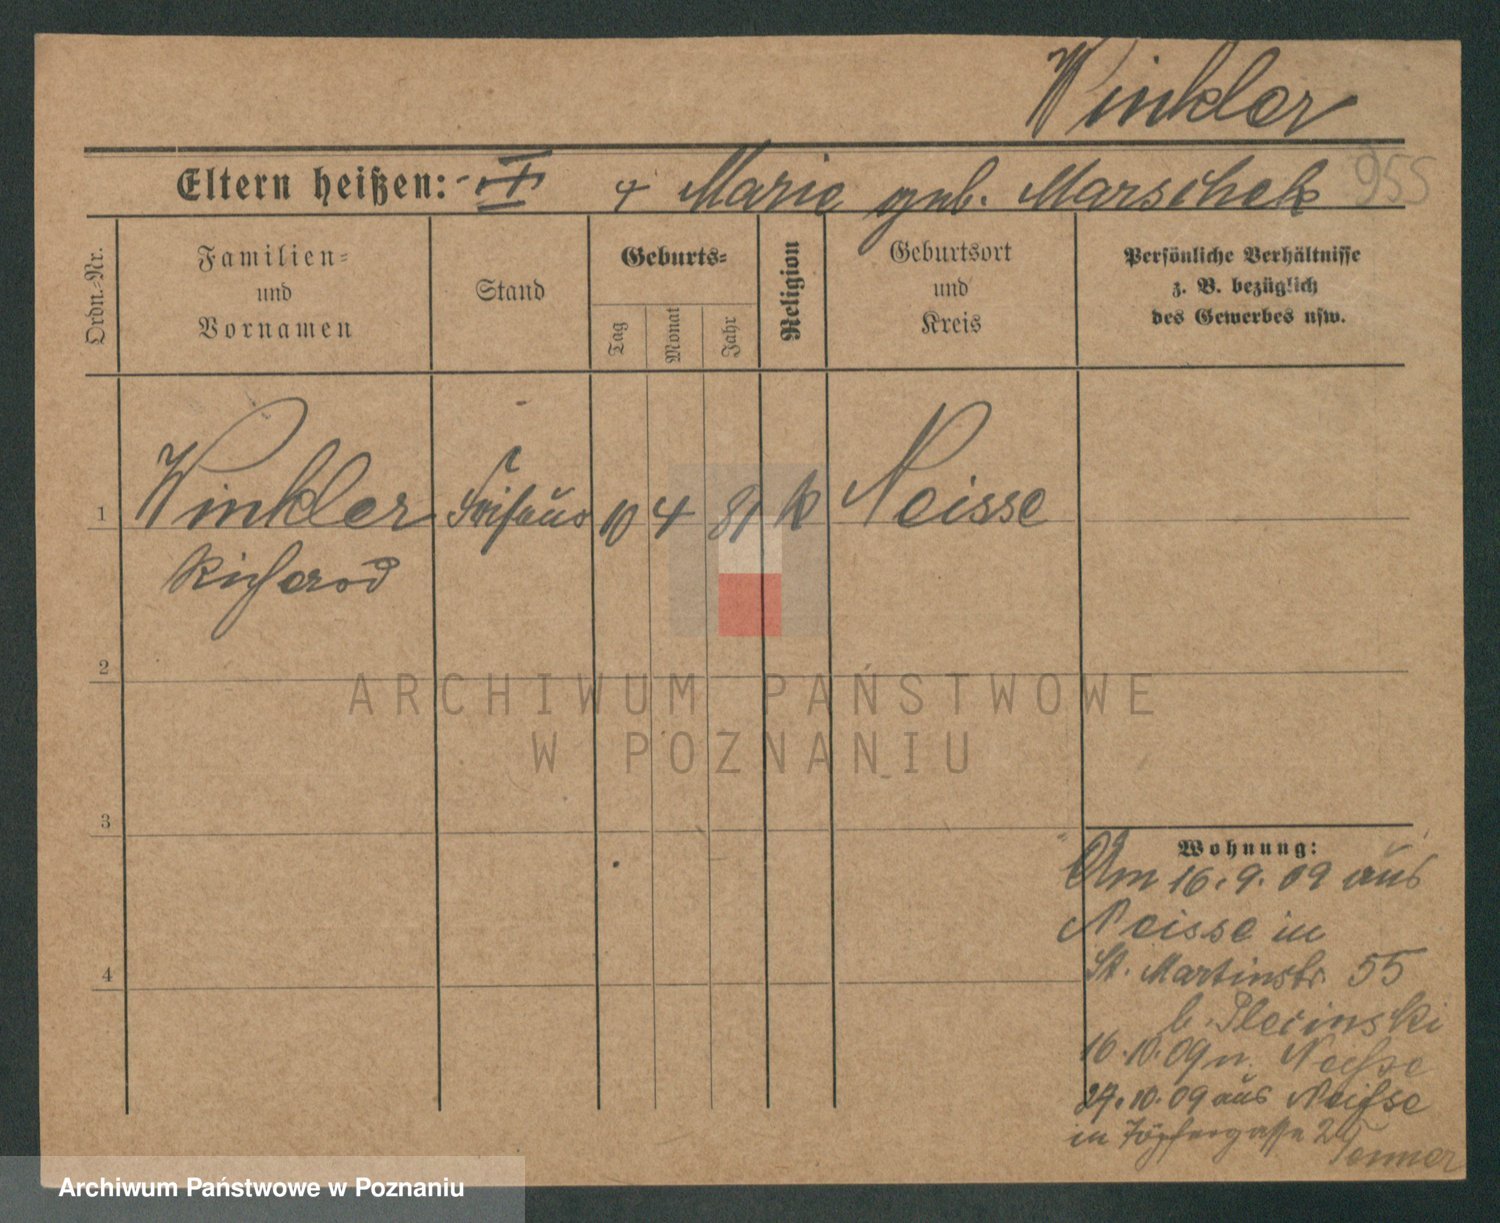 Winkler
Eltern heißen: - + Marie geb. Marschek 955
Ordn.-Nr.
Familien-
und
Vornamen
Stand
Geburts-
Tag
Monat
Jahr
Religion
Geburtsort
und
Kreis
Persönliche Verhältnisse
z. B. bezüglich
des Gewerbes usw.
1 Winkler Friseur 10 4 81 k Neisse
Richard
2
3
4
Wohnung:
Am 16.9.09 aus
Neisse in
St. Martinstr. 55
b. Plecinski
16.10.09 n. Neisse
27.10.09 aus Neisse
in Töpfergasse 2
ARCHIWUM PAŃSTWOWE
W POZNANIU
Archiwum Państwowe w Poznaniu